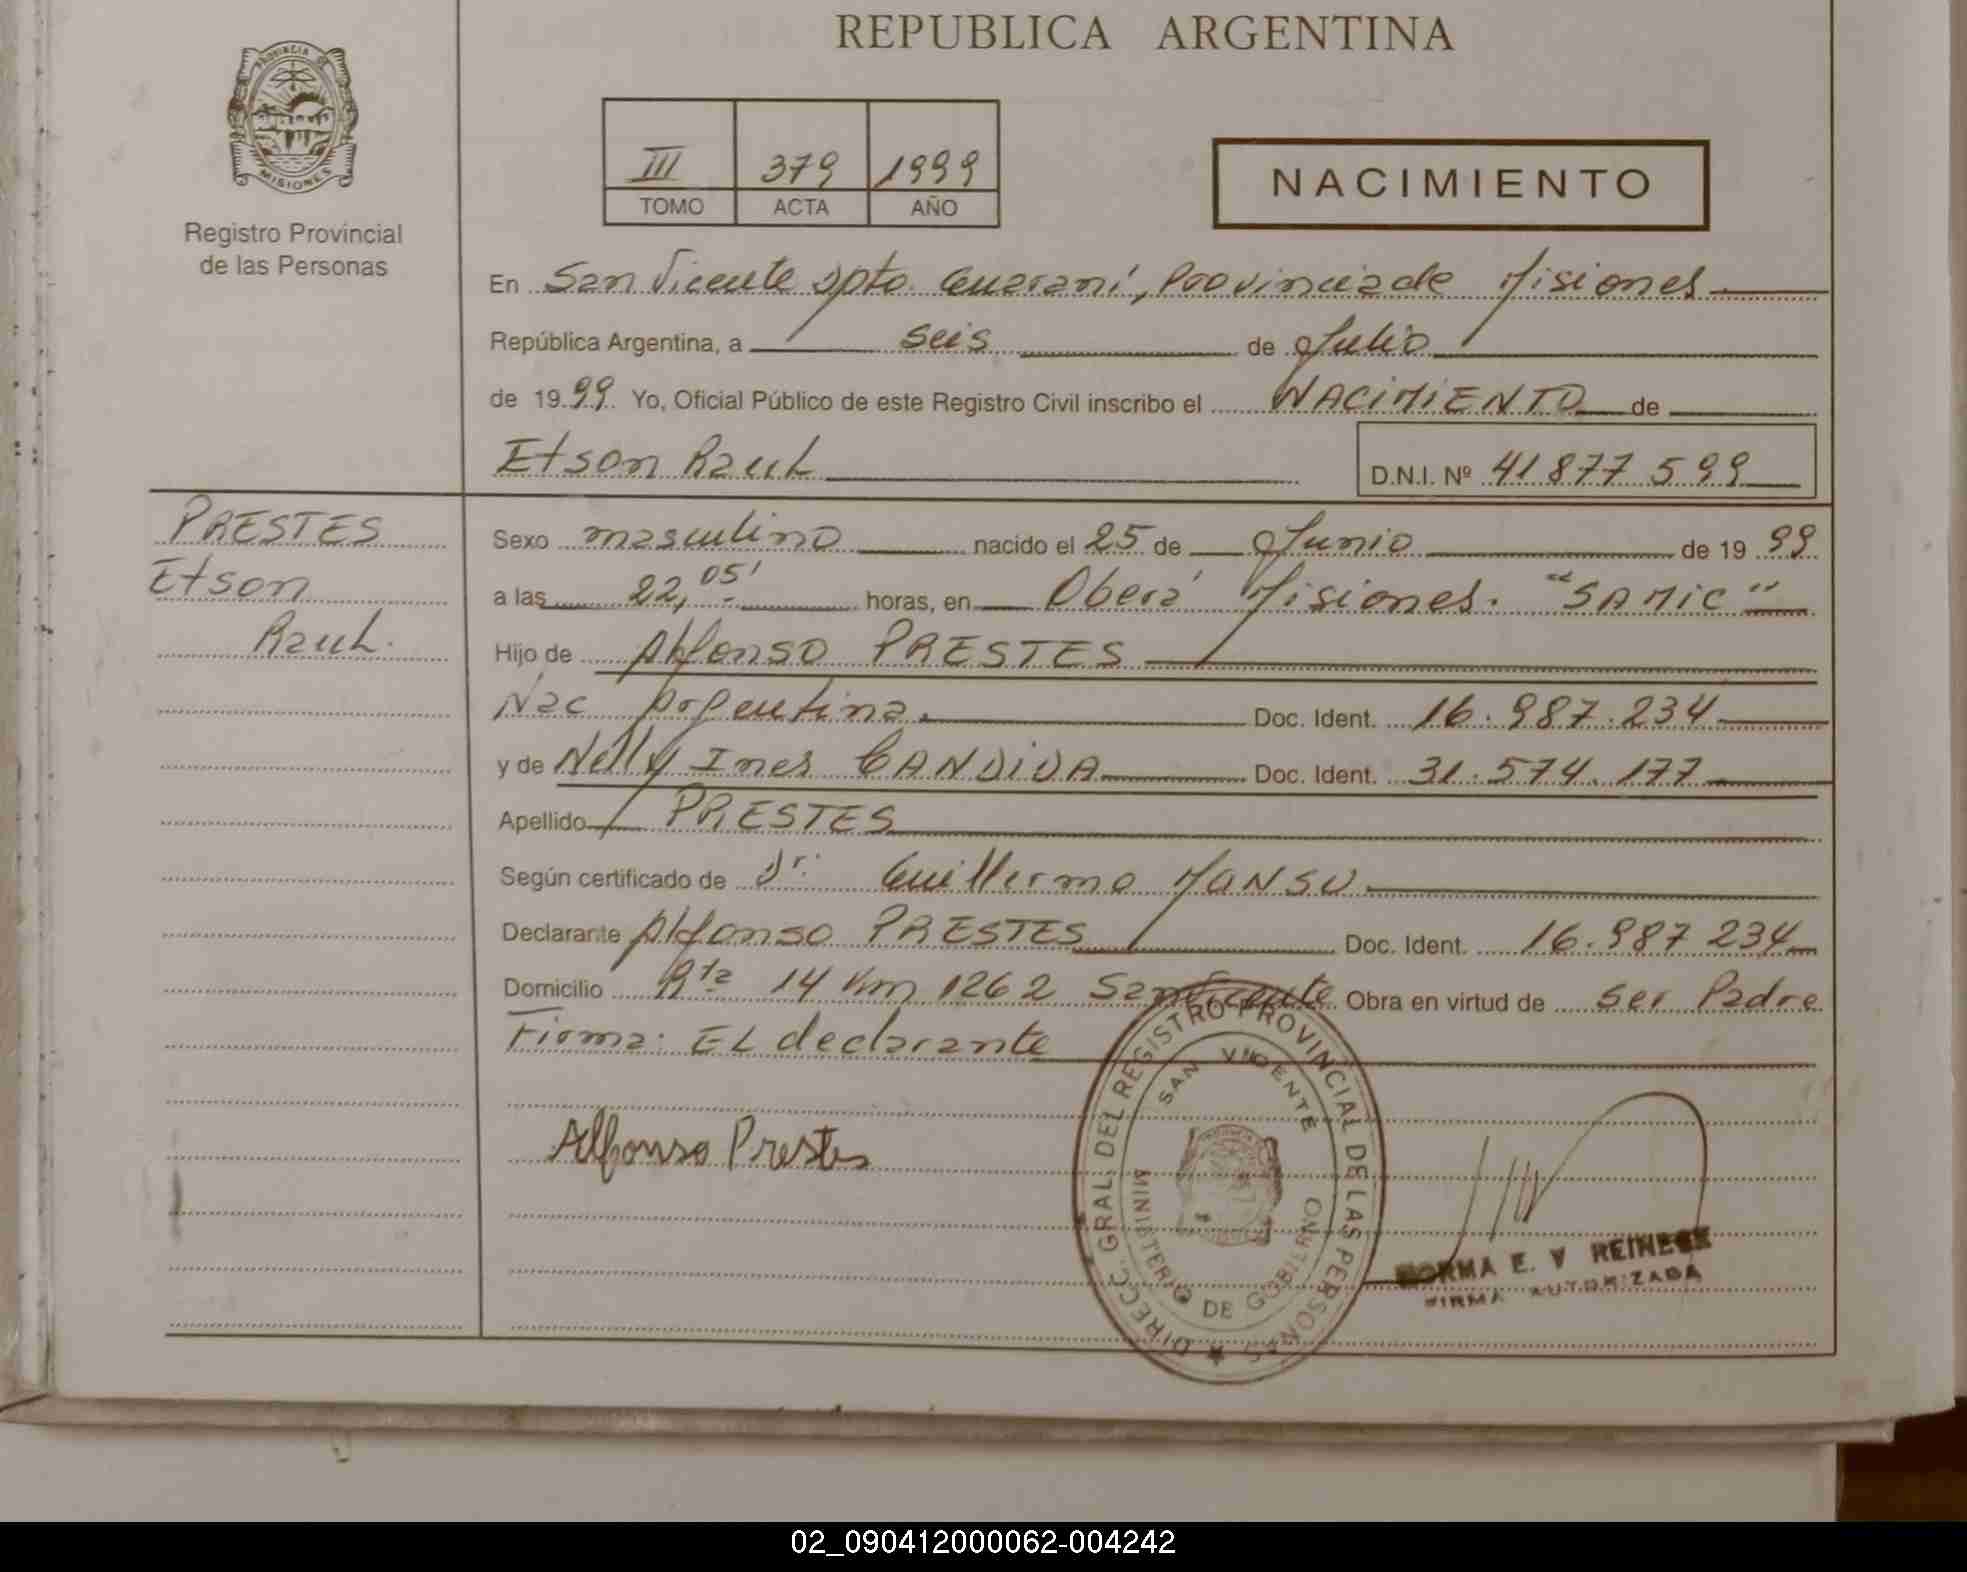 REPUBLICA ARGENTINA
PROVINCIA DE MISIONES
Registro Provincial
de las Personas
III 379 1999
TOMO ACTA AÑO
NACIMIENTO
En San Vicente Dpto. Guaraní, Provincia de Misiones
República Argentina, a seis de Julio
de 1999 Yo, Oficial Público de este Registro Civil inscribo el NACIMIENTO de
Etson Raul D.N.I. Nº 41877599
PRESTES
Etson
Raul.
Sexo masculino nacido el 25 de Junio de 1999
a las 22,05' horas, en Oberá Misiones. "SAMIC"
Hijo de Alfonso PRESTES
Nac Argentina. Doc. Ident. 16.987.234
y de Nelly Ines CANDIDA Doc. Ident. 31.574.177
Apellido PRESTES
Según certificado de Dr. Guillermo MANSU
Declarante Alfonso PRESTES Doc. Ident. 16.987 234
Domicilio Rta 14 Km 1262 San Vicente Obra en virtud de ser Padre
Firma: EL declarante
Alfonso Prestes
DIRECC. GRAL. DEL REGISTRO PROVINCIAL DE LAS PERSONAS
SAN VICENTE
MINISTERIO DE GOBIERNO
NORMA E. V REINECK
FIRMA AUTORIZADA
02_090412000062-004242